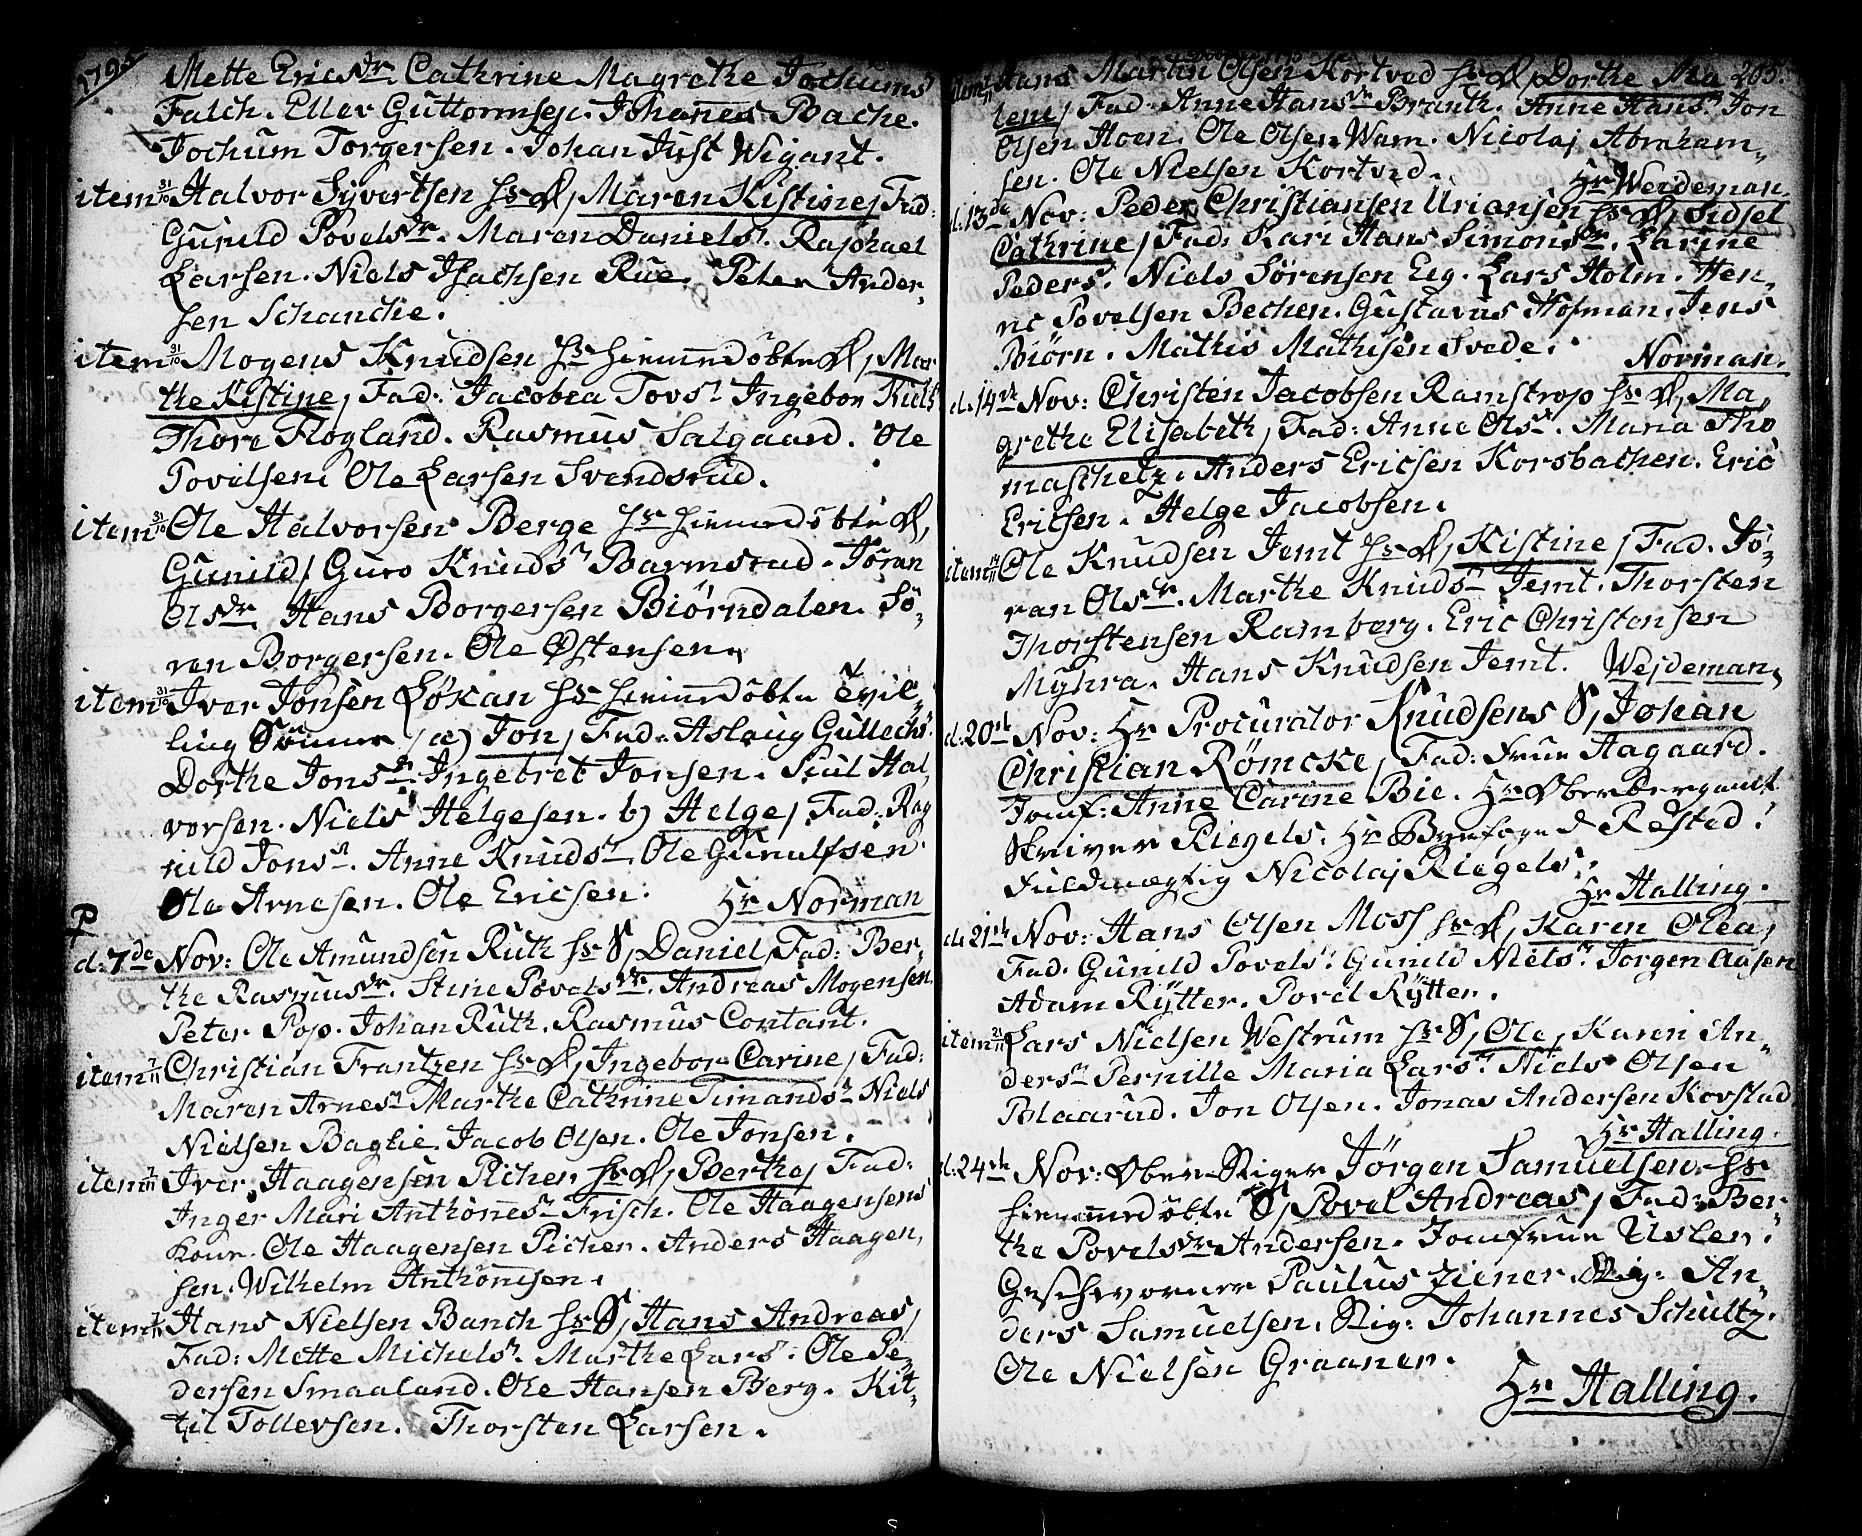 1795
Mette Ericsdr Cathrine Magrethe Jochums
Falch. Eller Guttormsen. Johanes Bache.
Jochum Torgersen. Johan Just Wigant.
item 31/10 Halvor Syvertsen hs D, Maren Kistine, Fad:
Gunild Povelsdr. Maren Daniels. Raphael
Larsen. Niels Isachsen Rue. Peter Ander-
sen Schanche.
item 31/10 Mogens Knudsen hs hiemmedøbte D, Mar
the Kistine, Fad: Jacobea Tovs Ingebor Kiels
Thore Flogland. Rasmus Salgaard. Ole
Povelsen. Ole Larsen Svendsrud.
item 31/10 Ole Halvorsen Berge hs hiemmedøbte D,
Gunild, Guro Knuds Barmsrud. Joran
Olsdr. Hans Borgersen Biørndalen. Sø-
ren Borgersen. Ole Østensen.
item 31/10 Iver Jonsen Løkan hs hiemmedøbte Tvil-
ling Sønner, a) Jon, Fad: Aslaug Gullechs.
Dorthe Jonsdr. Ingebret Jonsen. Siul Hal-
vorsen. Niels Helgesen. b) Helge, Fad: Rag
nild Jons. Anne Knuds. Ole Gunulfsen.
Ole Arnesen. Ole Ericsen. Hr Norman
P
d: 7de Nov: Ole Amundsen Ruth hs S, Daniel, Fad: Ber-
the Rasmusdr. Stine Povelsdr. Andreas Mogensen
Peter Pop. Johan Ruth. Rasmus Contant.
item 7/11 Christian Frantzen hs D, Ingebor Carine, Fad:
Maren Arnes Marthe Cathrine Timands Niels
Nielsen Baglie. Jacob Olsen. Ole Jonsen.
item 7/11 Iver Haagensen Picher hs D, Berthe, Fad:
Inger Mari Anthonnes Frisch. Ole Haagensens
Kone. Ole Haagensen Picher. Anders Haagen-
sen. Wilhelm Anthonisen.
item 7/11 Hans Nielsen Banch hs S, Hans Andreas,
Fad: Mette Michels. Marthe Lars. Ole Pe-
dersen Smaaland. Ole Hansen Berg. Kit-
til Tollevsen. Thorsten Larsen.
item Hans Martin Olsen Kortved hs D, Dorthe Ma 205.
lene, Fad: Anne Hansdr Branth. Anne Hans. Jon
Olsen Hoen. Ole Olsen Wam. Nicolaj Abraham-
sen. Ole Nielsen Kortved. Hr Weideman.
d. 13de Nov: Peder Christiansen Uriansen hs D, Sidsel
Cathrine, Fad: Kari Hans Simonsdr. Larine
Peders. Niels Sörensen Eeg. Lars Holm. Hen-
ric Povelsen Bechen. Gustavus Hofman. Jens
Biörn. Mathis Mathisen Svede. Norman.
d. 14de Nov: Christen Jacobsen Ramstrop hs D, Ma-
grethe Elisabeth, Fad: Anne Ols. Maria Tho
maschetz. Anders Ericsen Korsbachen. Eric
Ericsen. Helge Jacobsen.
item 14/11 Ole Knudsen Jemt hs D, Kistine, Fad. Jö-
ran Olsdr. Marthe Knuds Jemt. Thorsten
Thorstensen Ramberg. Eric Christensen
Myhra. Hans Knudsen Jemt. Weideman.
d. 20de Nov: Hr Procurator Knudsens S, Johan
Christian Römcke, Fad: Frue Aagaard.
Jomf: Anne Carine Bie. Hr OberBergamt
Skriver Riegels. Hr Byefoged Rested.
Fuldmægtig Nicolaj Riegels. Hr Halling.
d. 21de Nov: Hans Olsen Moss hs D, Karen Olea,
Fad. Gunild Povels. Gunild Niels. Jorgen Aasen
Adam Rÿtter. Povel Rÿtter.
item 21/11 Lars Nielsen Westrum hs S, Ole, Karen An-
ders Pernille Maria Lars. Niels Olsen
Blaarud. Jon Olsen. Jonas Andersen Korstad
Hr Halling.
d. 24de Nov: Ober Stiger Jörgen Samuelsen hs
hiemmedøbte S, Povel Andreas, Fad: Ber-
the Povelsdr Andersen. Jomfrue Usler.
Geschworner Paulus Ziener. Stig: An-
ders Samuelsen. Stig: Johannes Schultz.
Ole Nielsen Graaner.
Hr Halling.